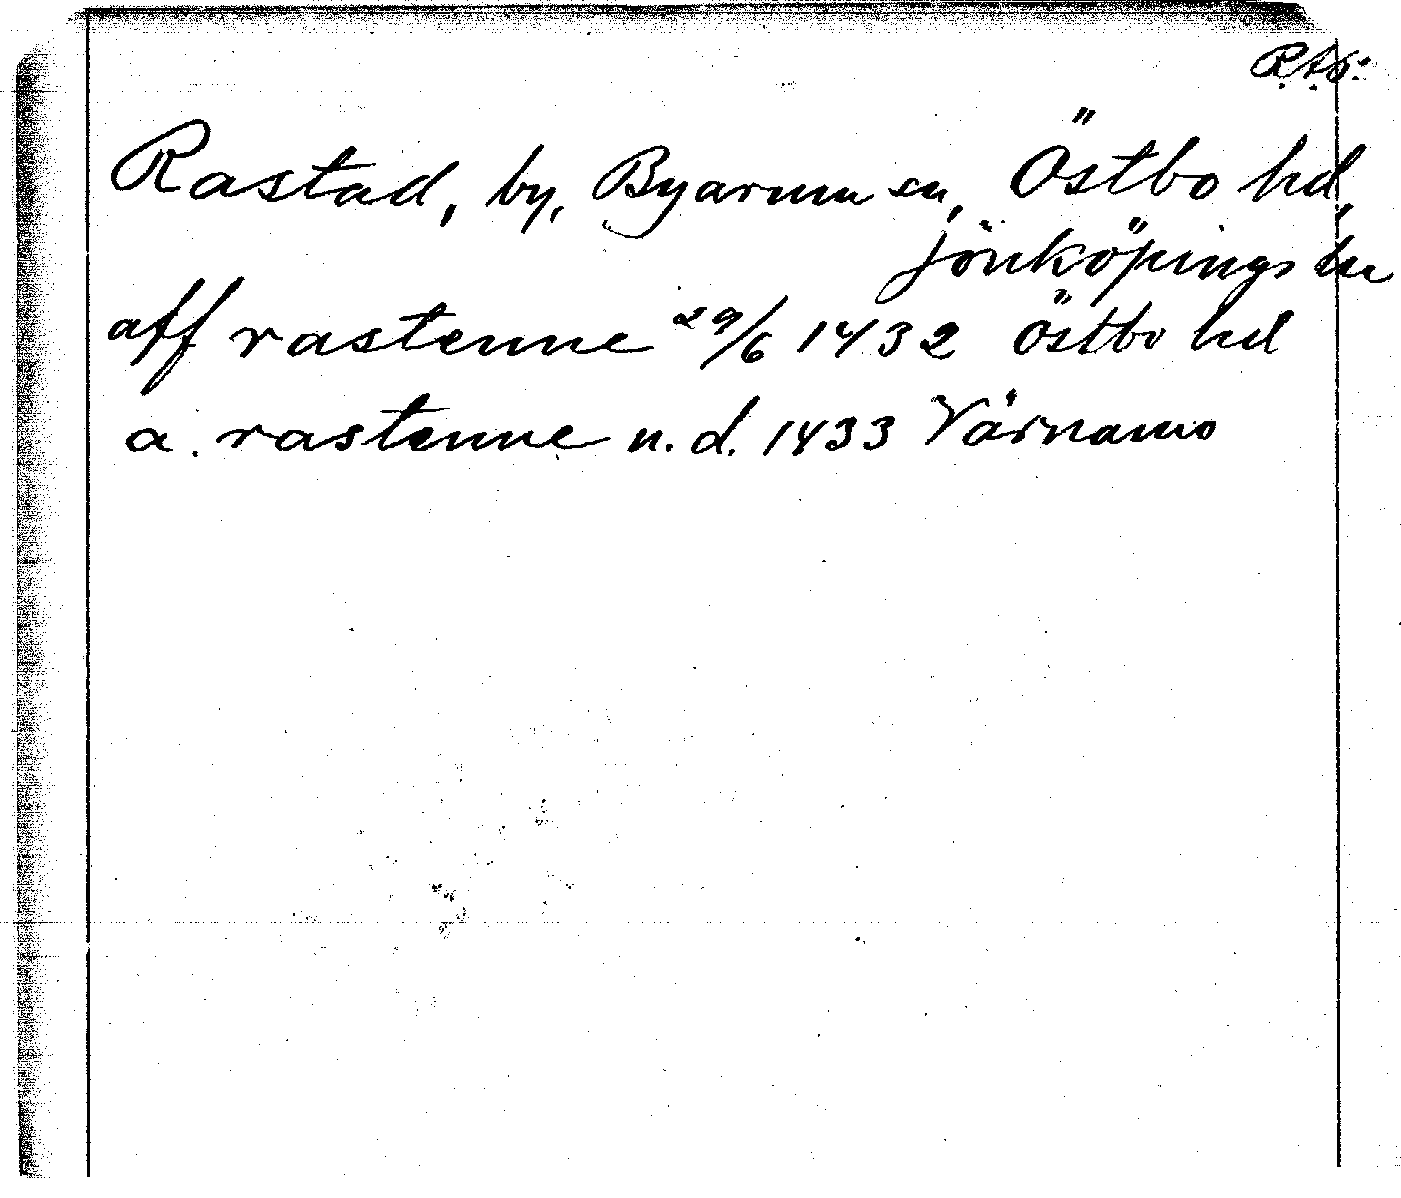 R.A.6.
Rastad, by, Byarum sn, Östbo hd,
Jönköpings län
aff rastenne 29/6 1432 Östbo hd
a. rastenne n.d. 1433 Värnamo